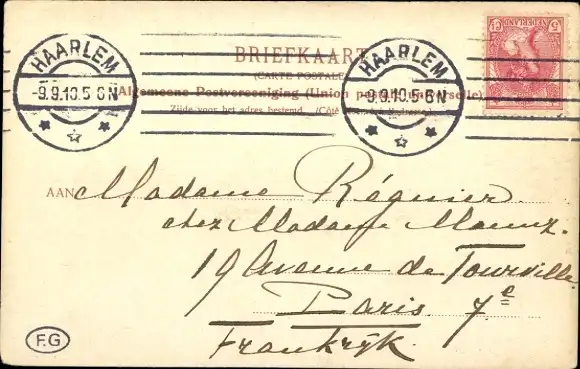 BRIEFKAART
(CARTE POSTALE)
Algemeene Postvereeniging (Union postale universelle)
Zijde voor het adres bestemd. (Côté
HAARLEM
-9.9.10.5-6N
HAARLEM
-9.9.10.5-6N
NEDERLAND
5 Ct
AAN Madame Régnier.
chez Madame
19 Avenue de Tourville.
Paris 7e
Frankrijk
F.G